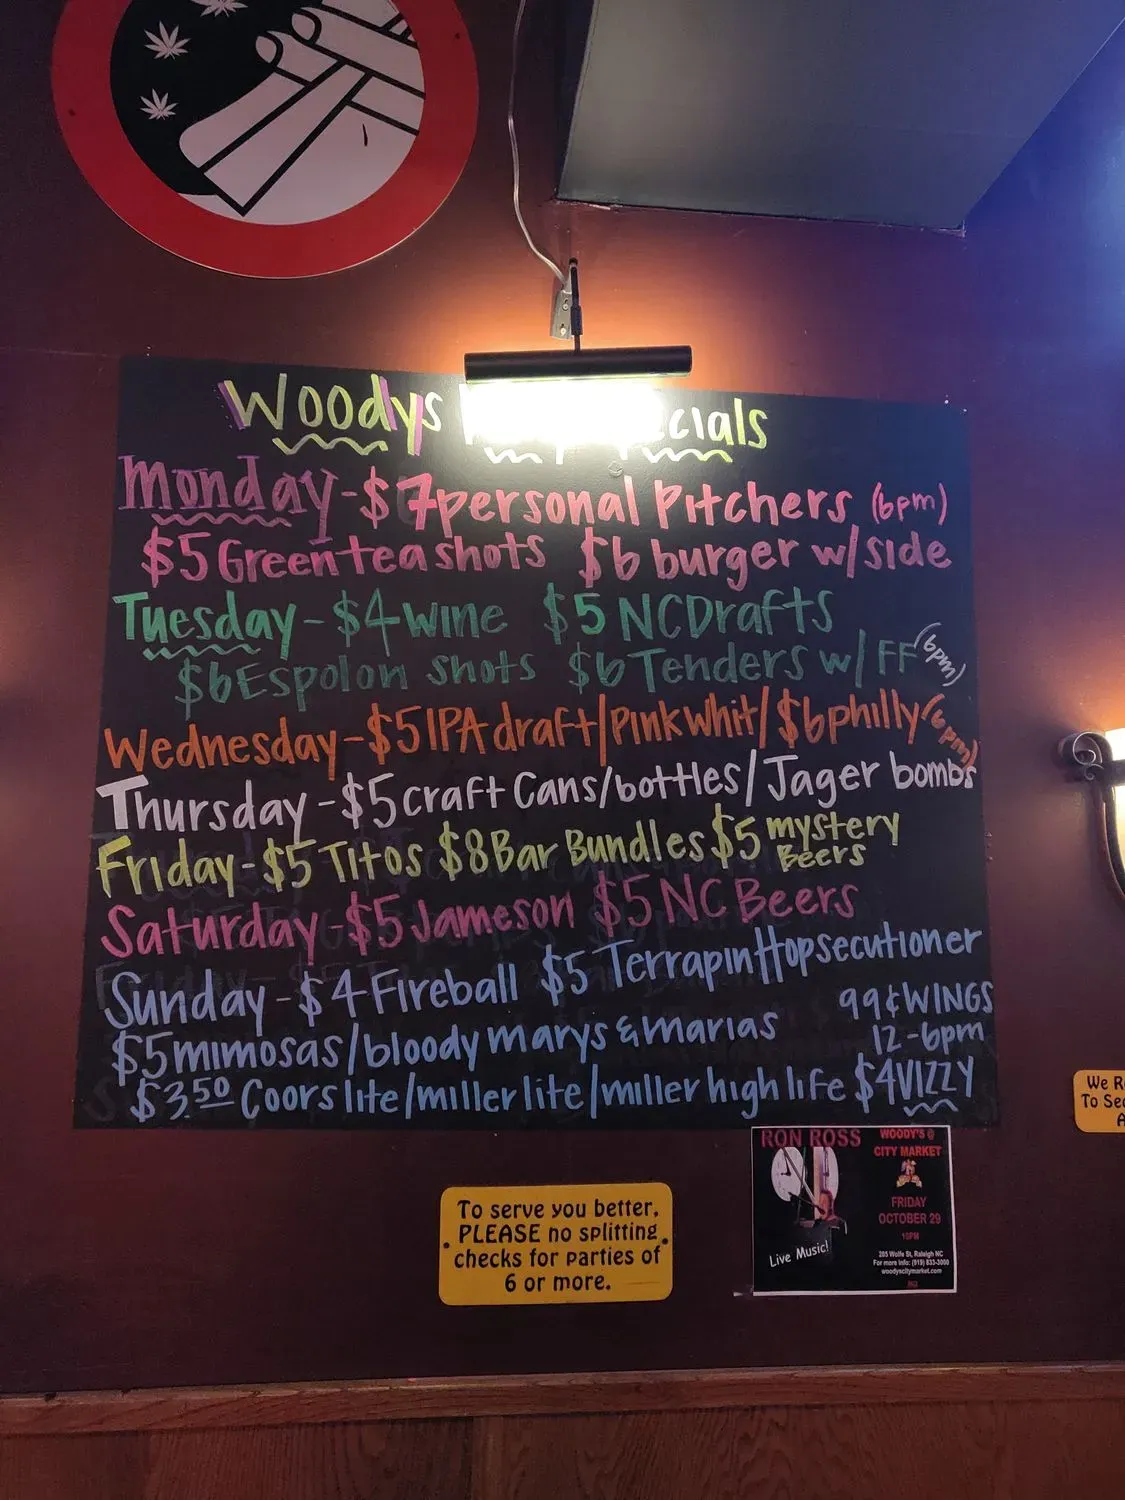 Woodys
Monday-$7 personal Pitchers (6pm)
$5 Green tea shots $6 burger w/side
Tuesday-$4 wine $5 NC Drafts
$6 Espolon shots $6 Tenders w/ FF (6pm)
Wednesday-$5 IPA draft/Pink Whit/$6 philly (6pm)
Thursday-$5 craft Cans/bottles/Jager bombs
Friday-$5 Titos $8 Bar Bundles $5 mystery
Beers
Saturday-$5 Jameson $5 NC Beers
Sunday-$4 Fireball $5 Terrapin Hopsecutioner
99¢ WINGS
12-6pm
$5 mimosas/bloody marys & marias
$3.50 Coors lite/miller lite/miller high life $4 VIZZY
RON ROSS
WOODY'S @
CITY MARKET
FRIDAY
OCTOBER 29
10PM
Live Music!
205 Wolfe St, Raleigh NC
For more info: (919) 833-3000
woodyscitymarket.com
To serve you better,
PLEASE no splitting
checks for parties of
6 or more.
We
To